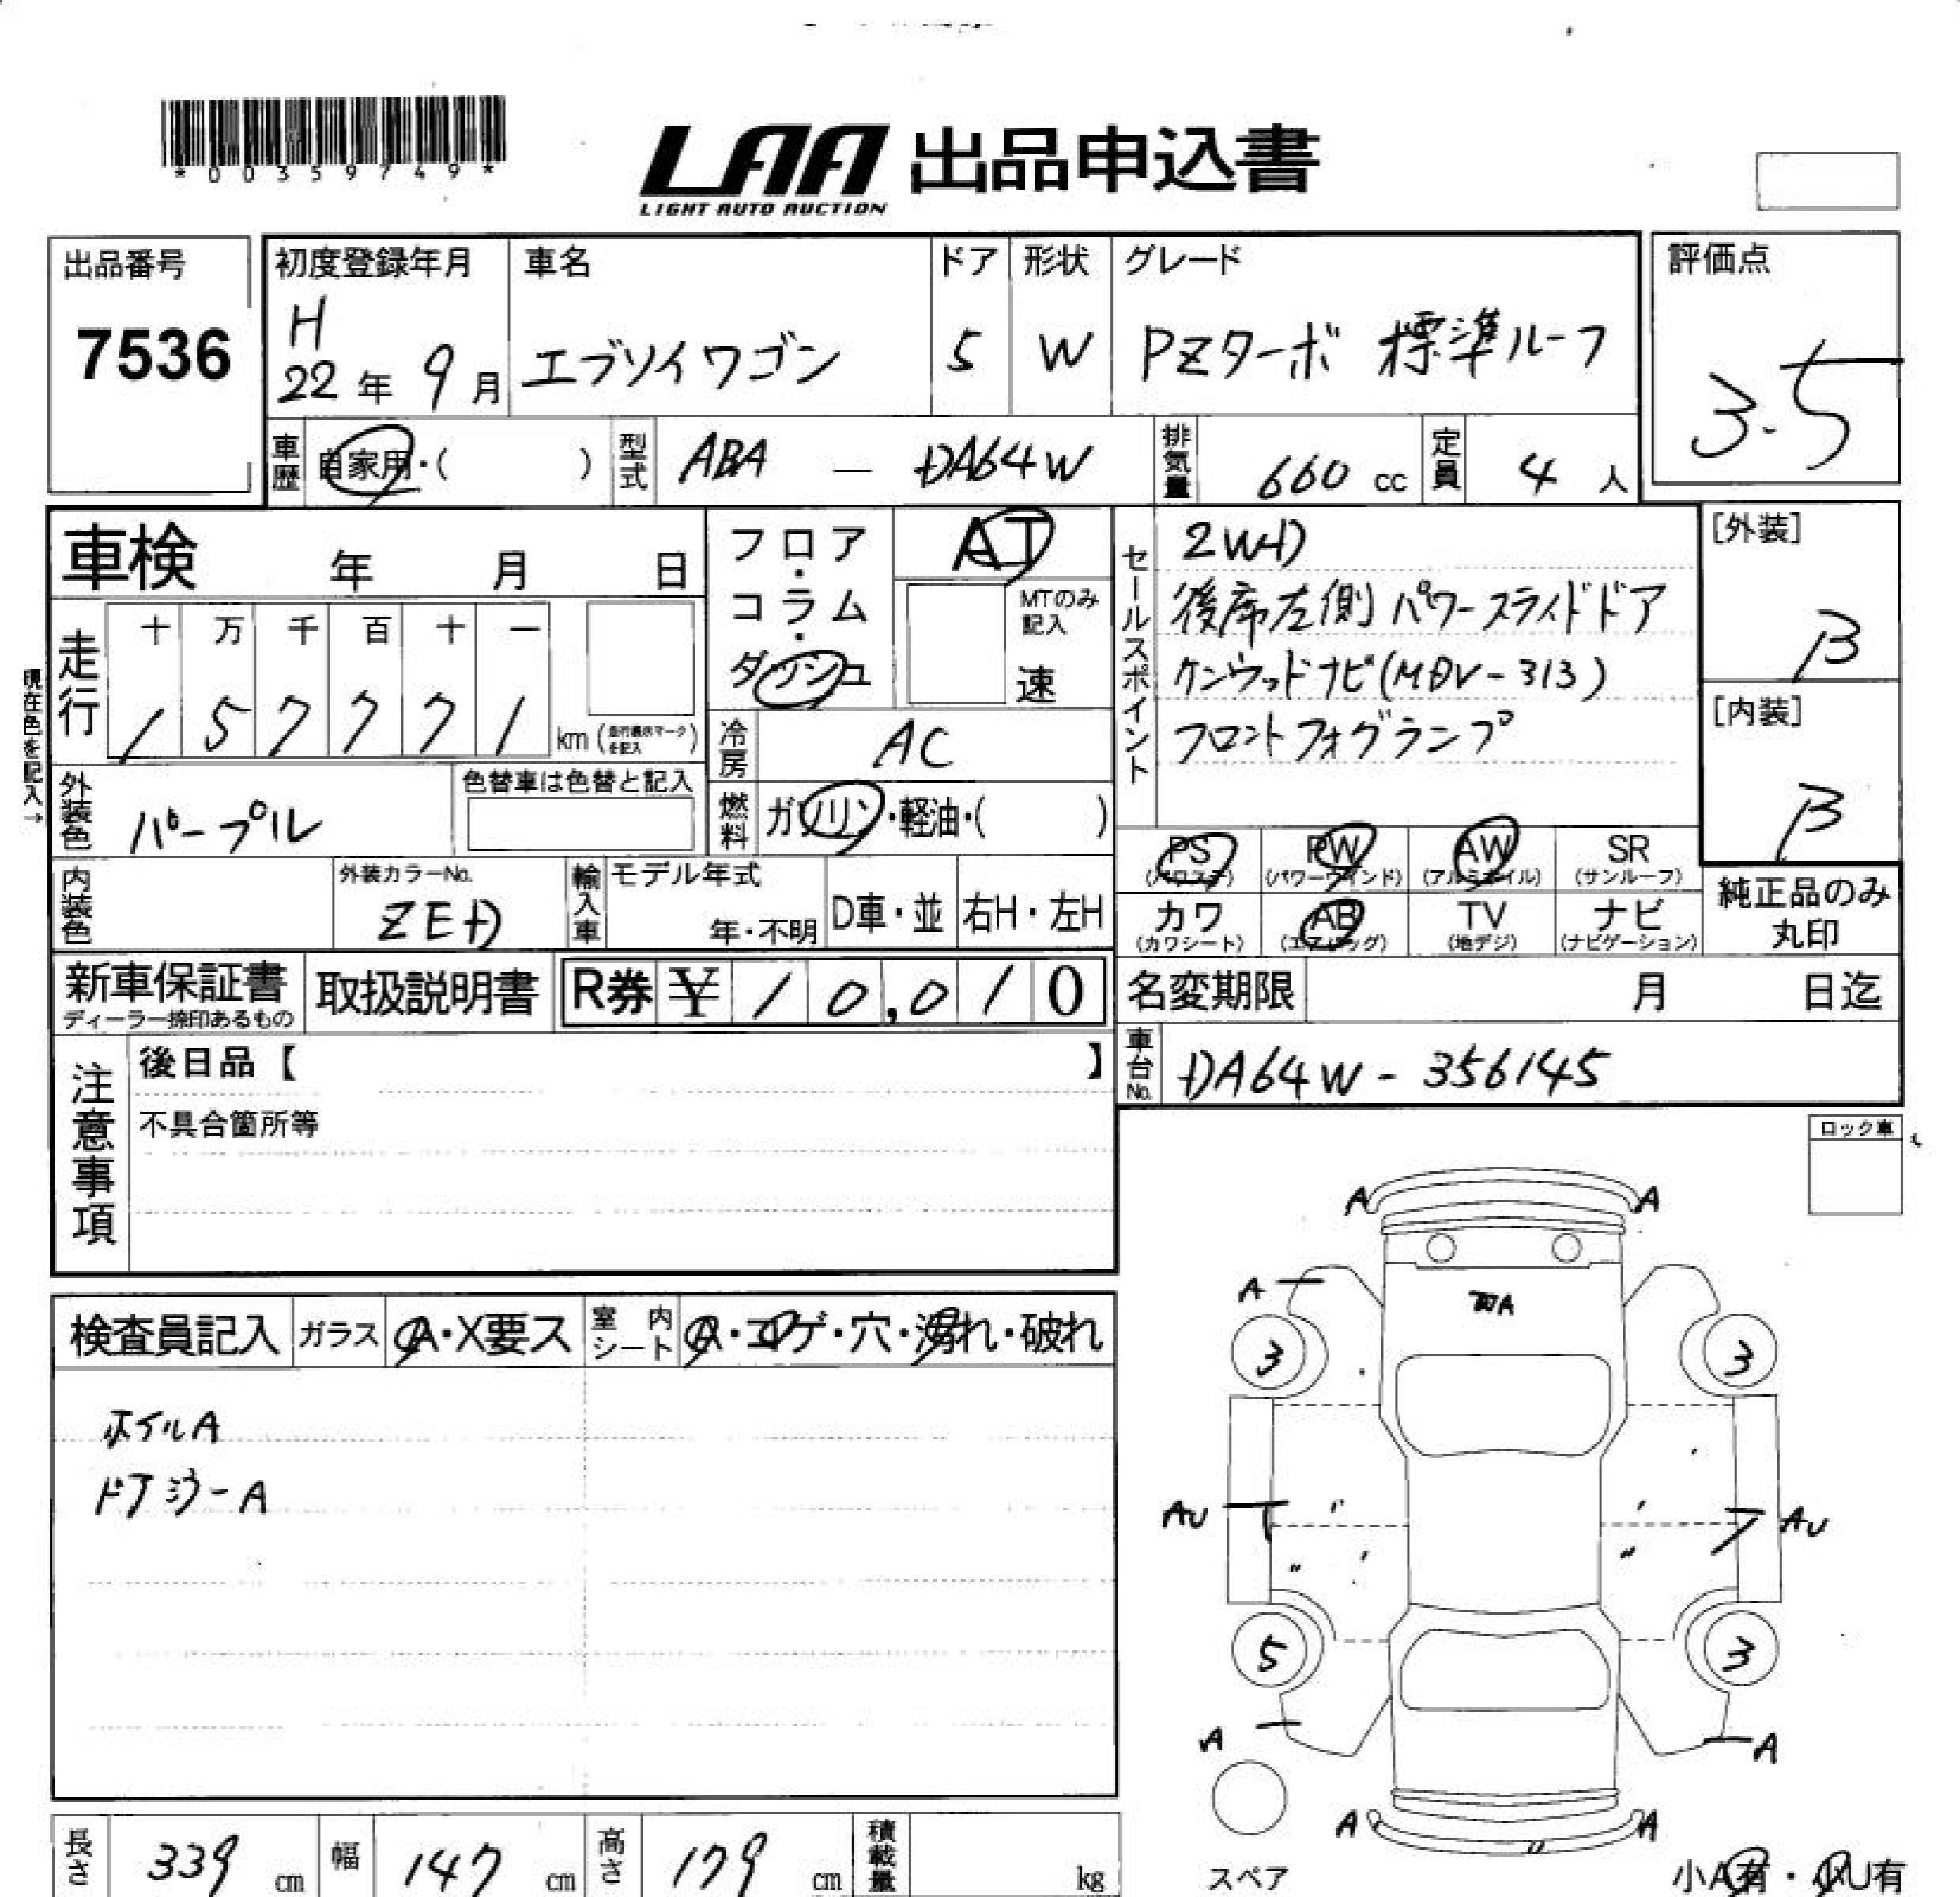 *00359749*
LAA 出品申込書
LIGHT AUTO AUCTION
出品番号
7536
初度登録年月
H
22年 9月
車名
エブリイワゴン
ドア
5
形状
W
グレード
PZターボ 標準ルーフ
評価点
3.5
車歴 自家用・( )
型式 ABA — DA64W
排気量 660 cc
定員 4 人
車検 年 月 日
フロア・コラム・ダッシュ
AT
MTのみ記入
速
セールスポイント
2WD
後席左側パワースライドドア
ケンウッドナビ(MDV-313)
フロントフォグランプ
[外装]
B
[内装]
B
現在色を記入→
走行
十 万 千 百 十 一
1 5 7 7 7 1 km (走行表示マークを記入)
冷房 AC
外装色 パープル
色替車は色替と記入
燃料 ガソリン・軽油・( )
PS (パワステ)
PW (パワーウィンド)
AW (アルミホイル)
SR (サンルーフ)
カワ (カワシート)
AB (エアバッグ)
TV (地デジ)
ナビ (ナビゲーション)
純正品のみ
丸印
内装色
外装カラーNo.
ZED
輸入車
モデル年式
年・不明
D車・並
右H・左H
新車保証書
ディーラー捺印あるもの
取扱説明書
R券 ¥10,010
名変期限 月 日迄
注意事項
後日品【 】
不具合箇所等
車台No. DA64W - 356145
ロック車
検査員記入
ガラス A・X要ス
室内シート A・コゲ・穴・汚れ・破れ
ホイルA
ドアミラーA
A A
A
A
3 3
AU AU
5 3
A A
A A
スペア
小A有・小U有
長さ 339 cm
幅 147 cm
高さ 179 cm
積載量 kg